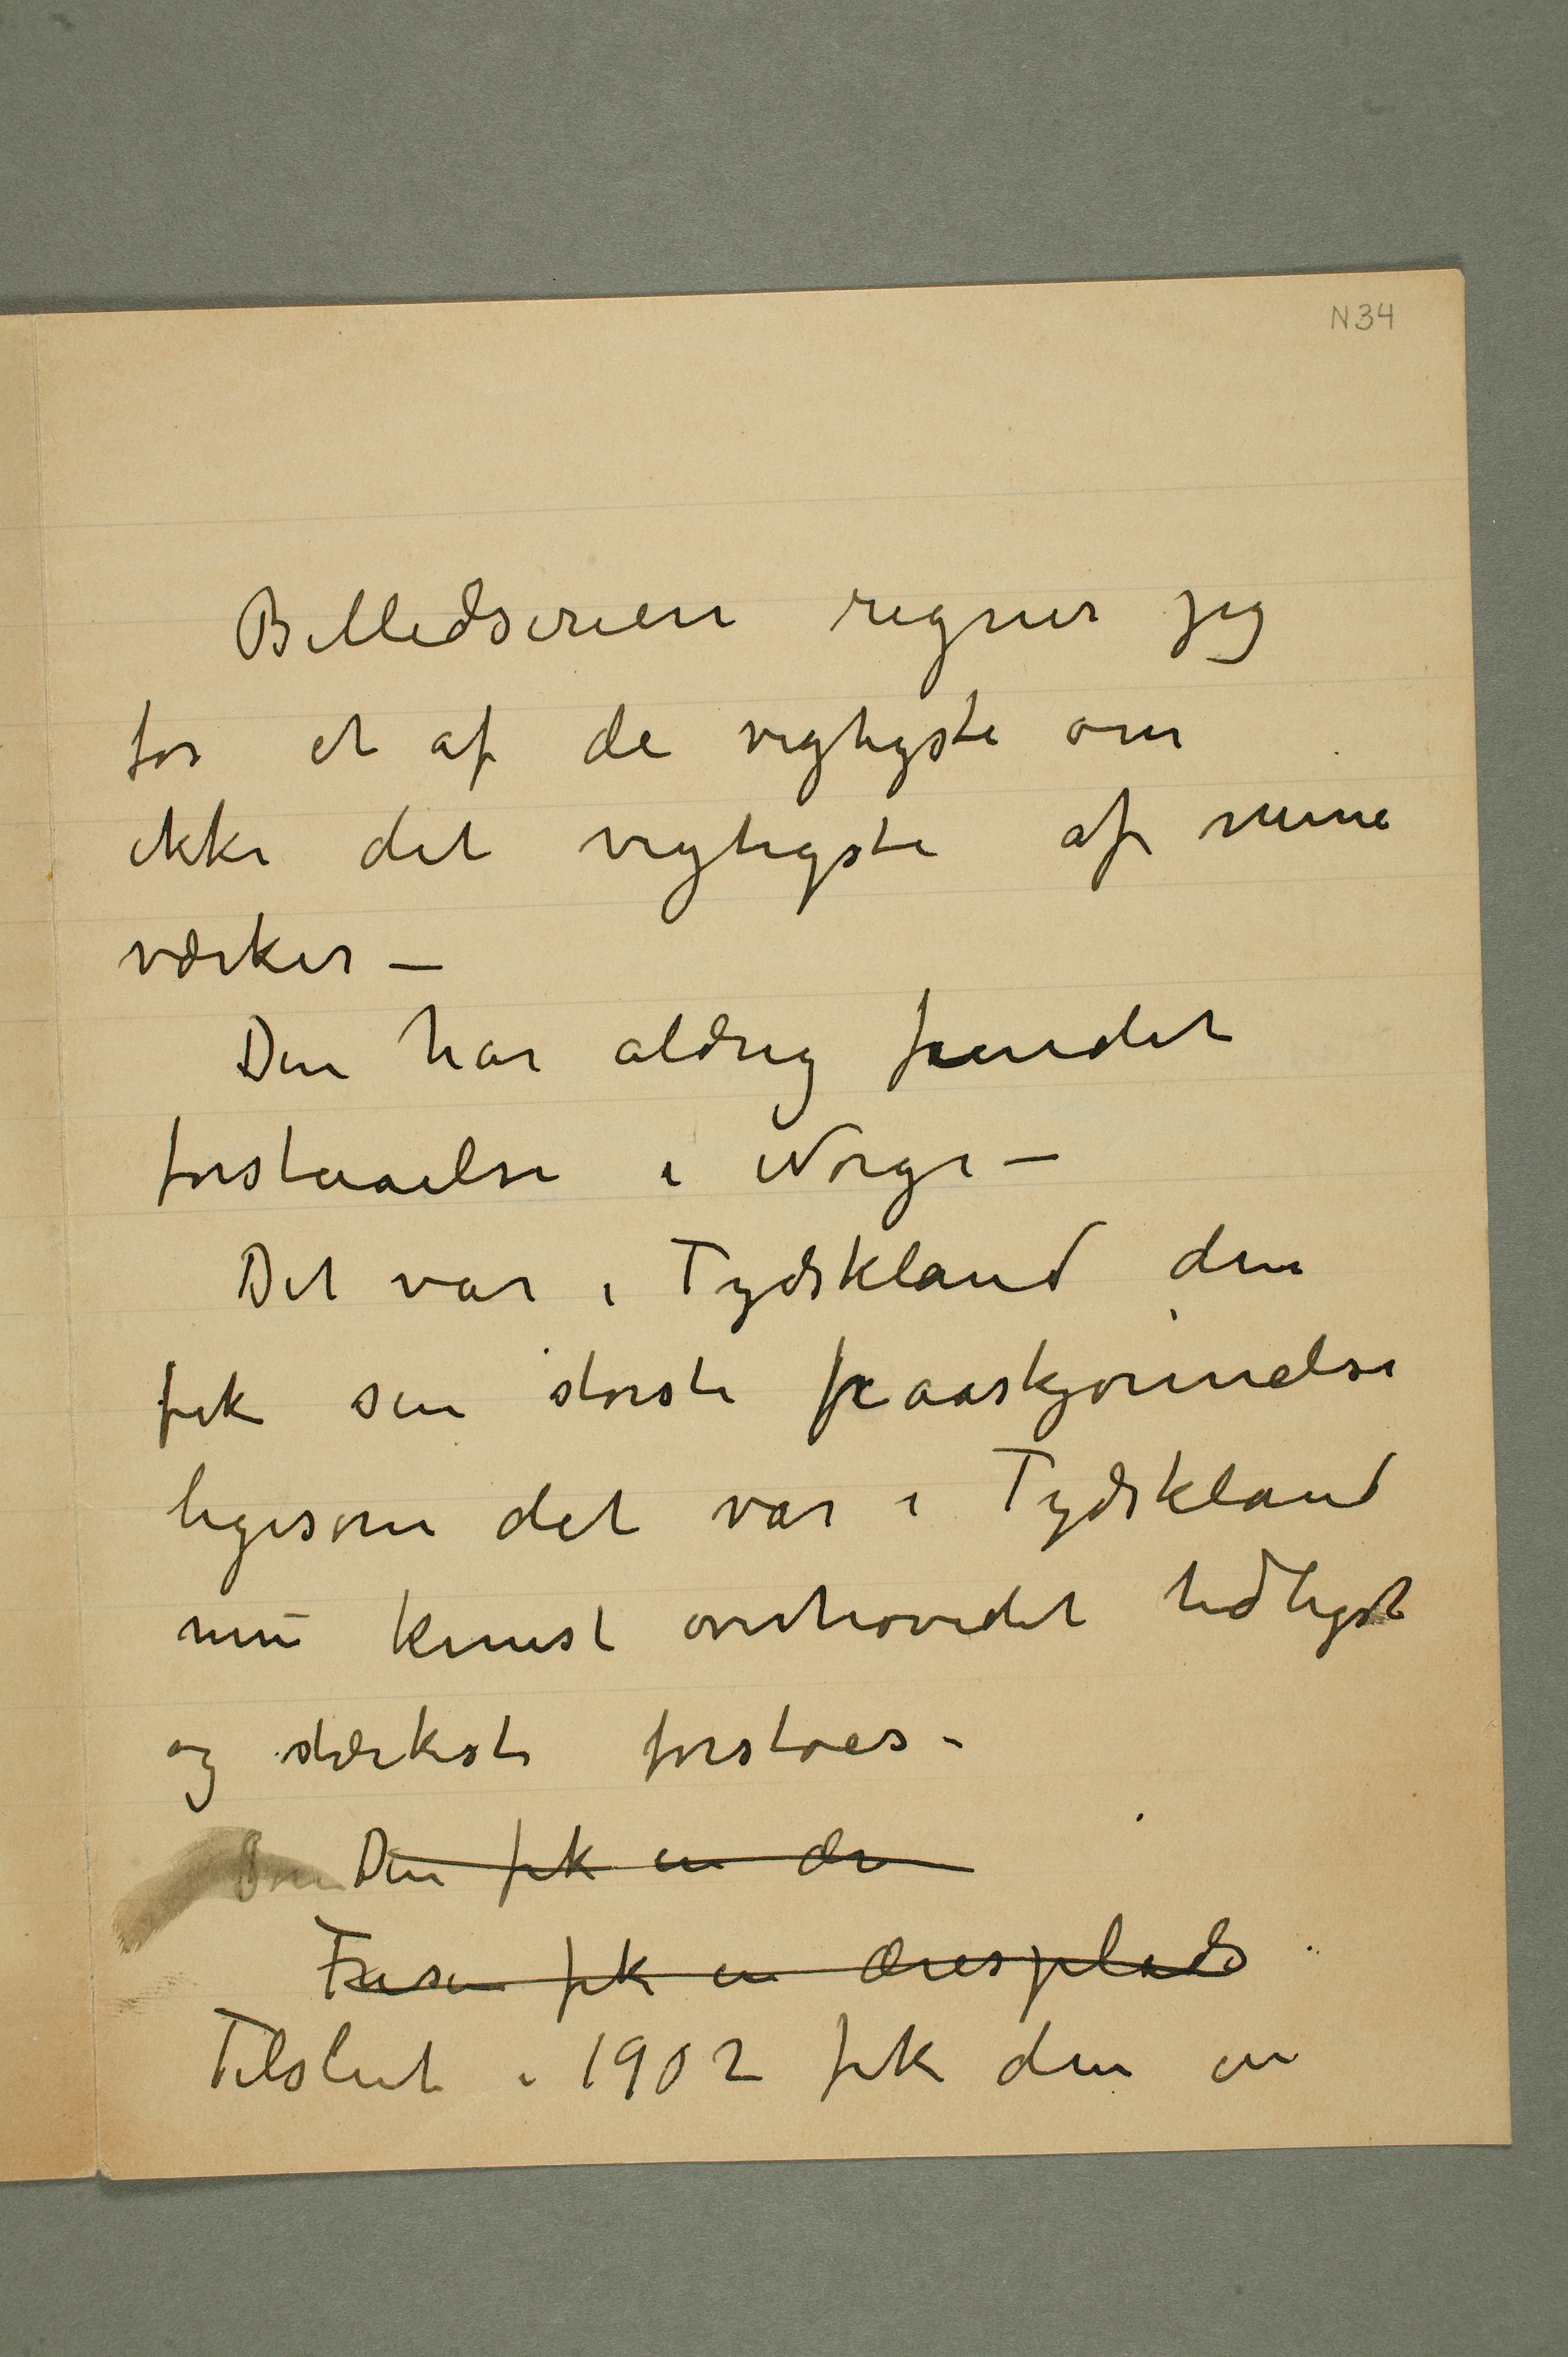 N34
Billedserien regner jeg
for et af de vigtigste om
ikke det vigtigste af mine
værker –
Den har aldrig fundet
forstaaelse i Norge –
Det var i Tydskland den
fik sin største paaskjønnelse
ligesom det var i Tydskland
min kunst overhovedet tidligst
og stærkeste forstoes –
Den fik en ær
Frisen fik en æresplads
Tilslut i 1902 fik den en